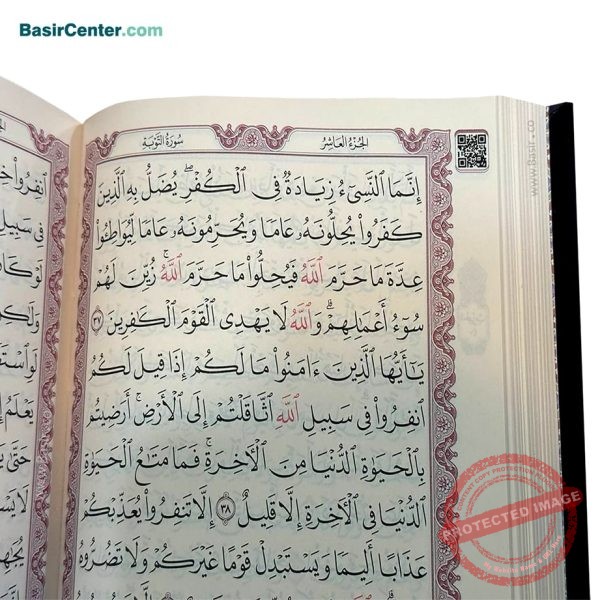 BasirCenter.com
الجُزءُ العَاشِرُ
سُورَةُ التَّوبَةِ
إِنَّمَا ٱلنَّسِىٓءُ زِيَادَةٌ فِى ٱلْكُفْرِ ۖ يُضَلُّ بِهِ ٱلَّذِينَ
كَفَرُوا۟ يُحِلُّونَهُۥ عَامًا وَيُحَرِّمُونَهُۥ عَامًا لِّيُوَاطِـُٔوا۟
عِدَّةَ مَا حَرَّمَ ٱللَّهُ فَيُحِلُّوا۟ مَا حَرَّمَ ٱللَّهُ ۚ زُيِّنَ لَهُمْ
سُوٓءُ أَعْمَٰلِهِمْ ۗ وَٱللَّهُ لَا يَهْدِى ٱلْقَوْمَ ٱلْكَٰفِرِينَ ٣٧
يَٰٓأَيُّهَا ٱلَّذِينَ ءَامَنُوا۟ مَا لَكُمْ إِذَا قِيلَ لَكُمُ
ٱنفِرُوا۟ فِى سَبِيلِ ٱللَّهِ ٱثَّاقَلْتُمْ إِلَى ٱلْأَرْضِ ۚ أَرَضِيتُم
بِٱلْحَيَوٰةِ ٱلدُّنْيَا مِنَ ٱلْءَاخِرَةِ ۚ فَمَا مَتَٰعُ ٱلْحَيَوٰةِ
ٱلدُّنْيَا فِى ٱلْءَاخِرَةِ إِلَّا قَلِيلٌ ٣٨ إِلَّا تَنفِرُوا۟ يُعَذِّبْكُمْ
عَذَابًا أَلِيمًا وَيَسْتَبْدِلْ قَوْمًا غَيْرَكُمْ وَلَا تَضُرُّوهُ
www.Basir.co
PROTECTED IMAGE